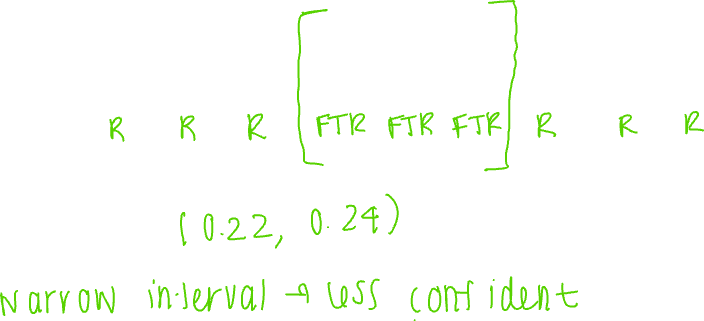 R R R [FTR FTR FTR] R R R
(0.22, 0.24)
Narrow interval → less confident